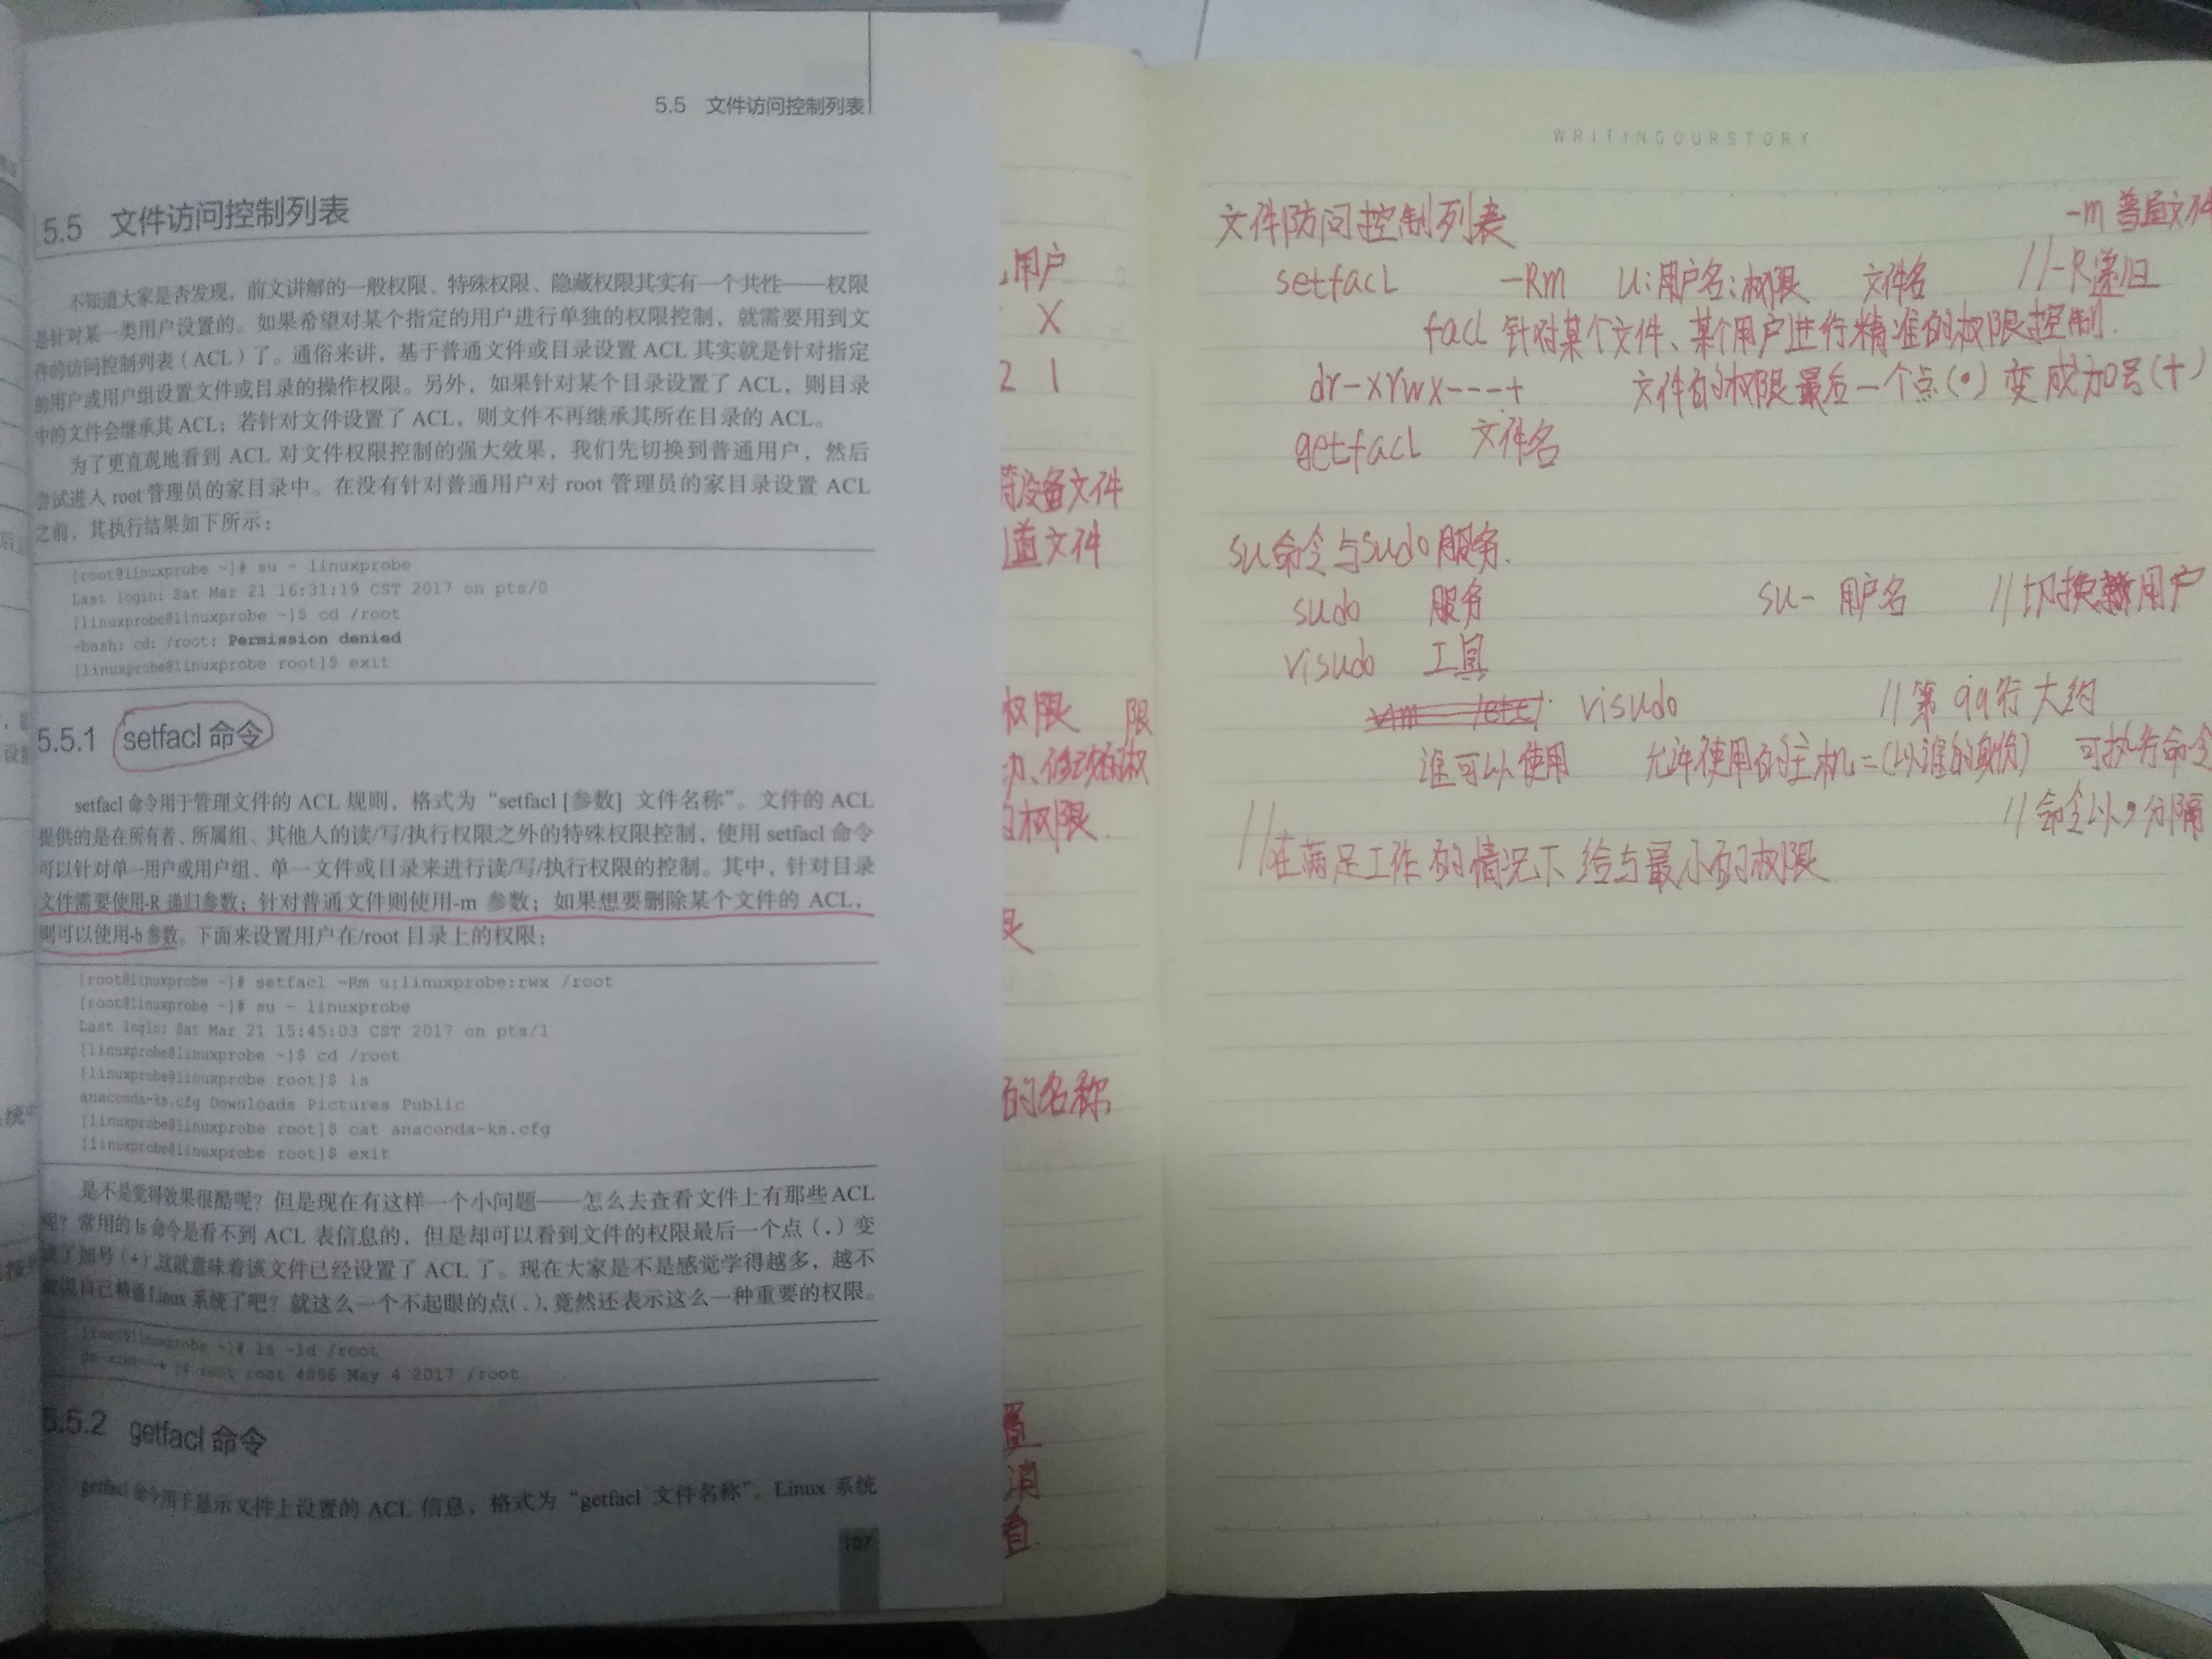 5.5 文件访问控制列表
5.5 文件访问控制列表
不知道大家是否发现，前文讲解的一般权限、特殊权限、隐藏权限其实有一个共性——权限
是针对某一类用户设置的。如果希望对某个指定的用户进行单独的权限控制，就需要用到文
件的访问控制列表（ACL）了。通俗来讲，基于普通文件或目录设置 ACL 其实就是针对指定
的用户或用户组设置文件或目录的操作权限。另外，如果针对某个目录设置了 ACL，则目录
中的文件会继承其 ACL；若针对文件设置了 ACL，则文件不再继承其所在目录的 ACL。
为了更直观地看到 ACL 对文件权限控制的强大效果，我们先切换到普通用户，然后
尝试进入 root 管理员的家目录中。在没有针对普通用户对 root 管理员的家目录设置 ACL
之前，其执行结果如下所示：
[root@linuxprobe ~]# su - linuxprobe
Last login: Sat Mar 21 16:31:19 CST 2017 on pts/0
[linuxprobe@linuxprobe ~]$ cd /root
-bash: cd: /root: Permission denied
[linuxprobe@linuxprobe root]$ exit
5.5.1 setfacl 命令
setfacl 命令用于管理文件的 ACL 规则，格式为“setfacl [参数] 文件名称”。文件的 ACL
提供的是在所有者、所属组、其他人的读/写/执行权限之外的特殊权限控制，使用 setfacl 命令
可以针对单一用户或用户组、单一文件或目录来进行读/写/执行权限的控制。其中，针对目录
文件需要使用-R 递归参数；针对普通文件则使用-m 参数；如果想要删除某个文件的 ACL，
则可以使用-b 参数。下面来设置用户在/root 目录上的权限：
[root@linuxprobe ~]# setfacl -Rm u:linuxprobe:rwx /root
[root@linuxprobe ~]# su - linuxprobe
Last login: Sat Mar 21 15:45:03 CST 2017 on pts/1
[linuxprobe@linuxprobe ~]$ cd /root
[linuxprobe@linuxprobe root]$ ls
anaconda-ks.cfg Downloads Pictures Public
[linuxprobe@linuxprobe root]$ cat anaconda-ks.cfg
[linuxprobe@linuxprobe root]$ exit
是不是觉得效果很酷呢？但是现在有这样一个小问题——怎么去查看文件上有那些 ACL
呢？常用的 ls 命令是看不到 ACL 表信息的，但是却可以看到文件的权限最后一个点（.）变
成了加号（+）,这就意味着该文件已经设置了 ACL 了。现在大家是不是感觉学得越多，越不
敢说自己精通 Linux 系统了吧？就这么一个不起眼的点(.)，竟然还表示这么一种重要的权限。
[root@linuxprobe ~]# ls -ld /root
root root 4096 May 4 2017 /root
5.5.2 getfacl 命令
getfacl 命令用于显示文件上设置的 ACL 信息，格式为“getfacl 文件名称”。Linux 系统
107
用户
X
2 1
设备文件
道文件
权限 限
权限
的名称
置
消
看
WRITINGOURSTORY
-m 普通文件
文件防问控制列表
setfacl -Rm u:用户名:权限 文件名 //-R递归
facl 针对某个文件、某个用户进行精准的权限控制.
dr-xrwx---+ 文件的权限最后一个点(•)变成加号(+)
getfacl 文件名
su命令与sudo服务.
sudo 服务 su- 用户名 //切换新用户
visudo 工具
visudo //第99行大约
谁可以使用 允许使用的主机=(以谁的身份) 可执行命令
//命令以,分隔
//在满足工作的情况下给与最小的权限